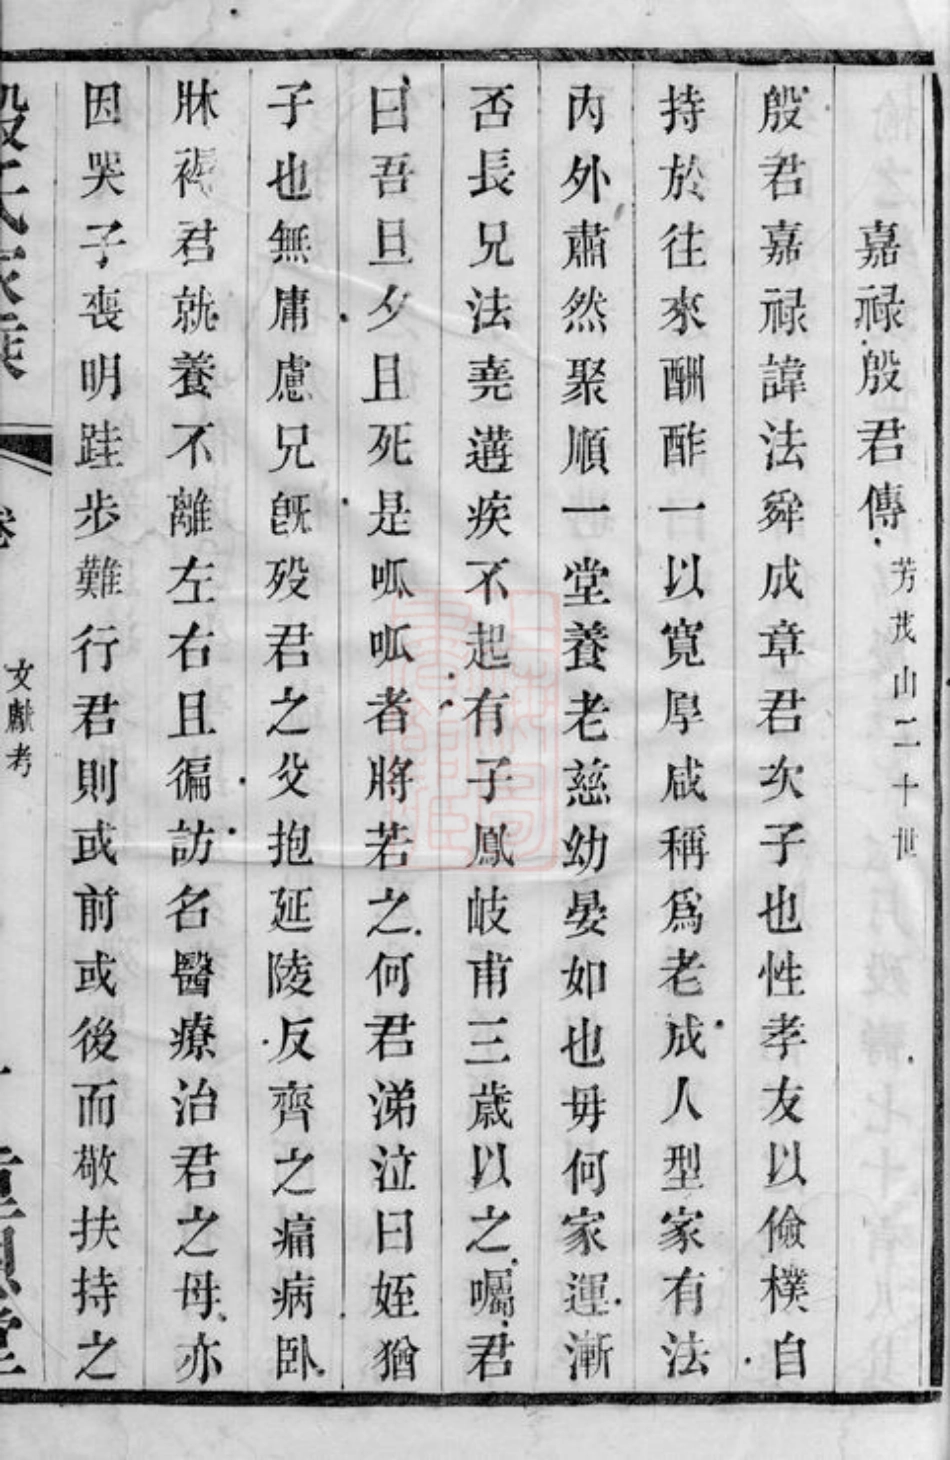 嘉祿殷君傳 芳茂山二十世
殷君嘉祿諱法舜成章君次子也性孝友以儉樸自
持於往來酬酢一以寬厚咸稱為老成人型家有法
內外肅然聚順一堂養老慈幼晏如也毋何家運漸
否長兄法堯遘疾不起有子鳳岐甫三歲以之囑君
曰吾旦夕且死是呱呱者將若之何君涕泣曰姪猶
子也無庸慮兄既歿君之父抱延陵反齊之痛病臥
牀褥君就養不離左右且徧訪名醫療治君之母亦
因哭子喪明跬步難行君則或前或後而敬扶持之
殷氏家乘 卷 文獻考